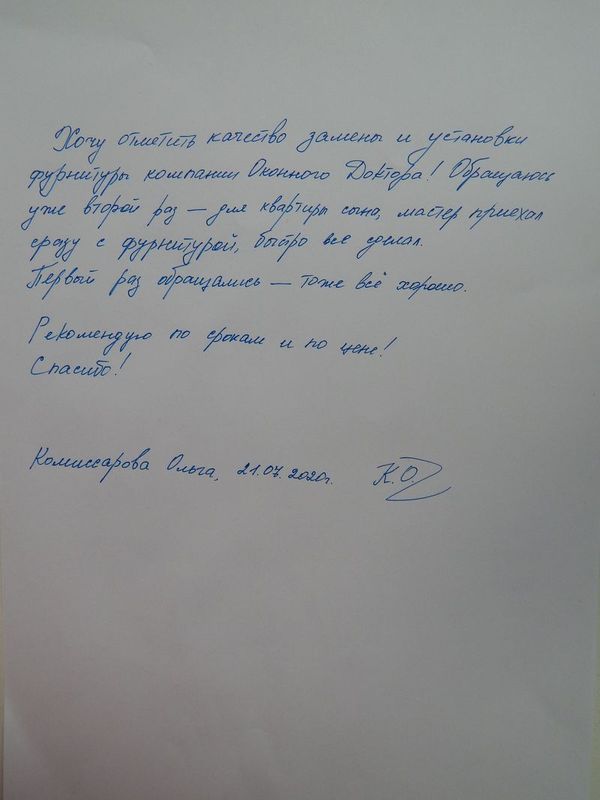 Хочу отметить качество замены и установки
фурнитуры компании Оконного Доктора! Обращаюсь
уже второй раз — для квартиры сына, мастер приехал
сразу с фурнитурой, быстро все сделал.
Первый раз обращались — тоже всё хорошо.
Рекомендую по срокам и по цене!
Спасибо!
Комиссарова Ольга, 21.07.2020г. К.О.